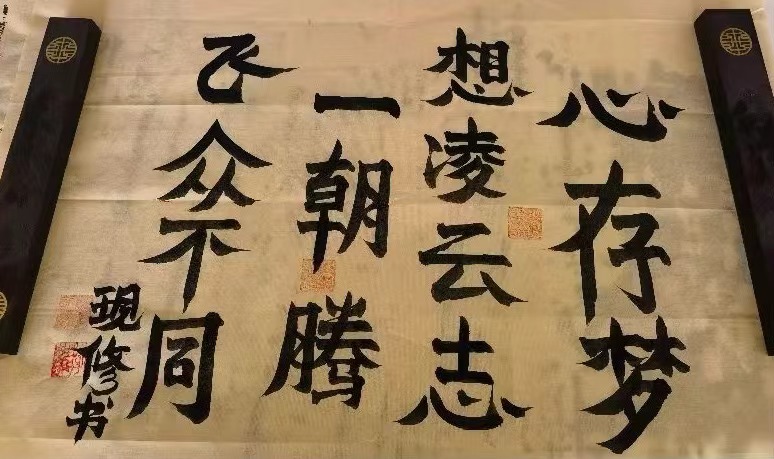 心存梦
想凌云志
一朝腾
飞众不同
现修书